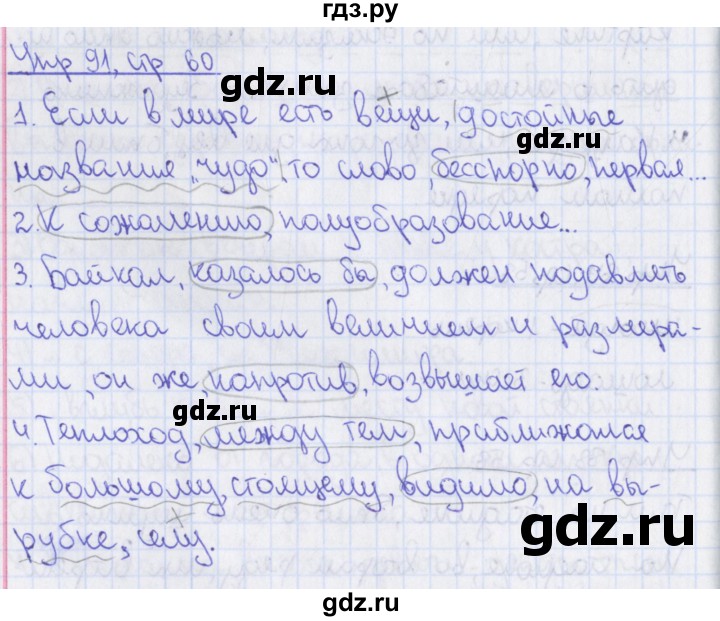 гдз.ру
Упр 91, стр 60
gdz.ru
1. Если в мире есть вещи, достойные
gdz.ru
название „чудо", то слово, бесспорно, первая...
2. К сожалению, полуобразование...
3. Байкал, казалось бы, должен подавлять
человека своим величием и размера-
ми, он же, напротив, возвышает его.
gdz.ru
4. Теплоход, между тем, приближался
к большому, стоящему, видимо, на вы-
рубке, селу.
gdz.ru
gdz.ru